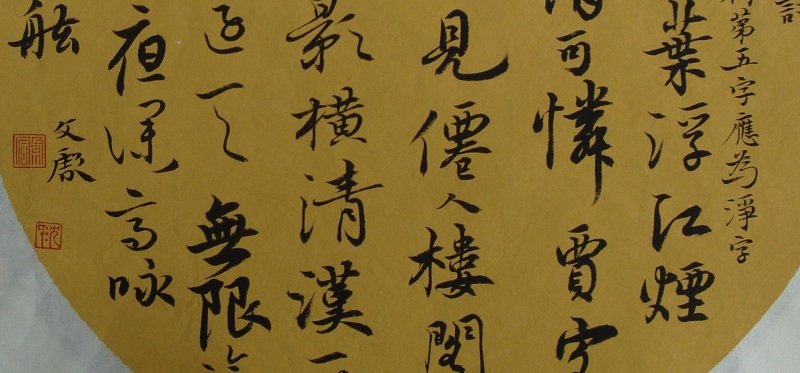 第五字應為淨字
葉浮江煙
可憐賈
見僊人樓閣
影橫清漢
一天無限
夜深高詠
舷
文